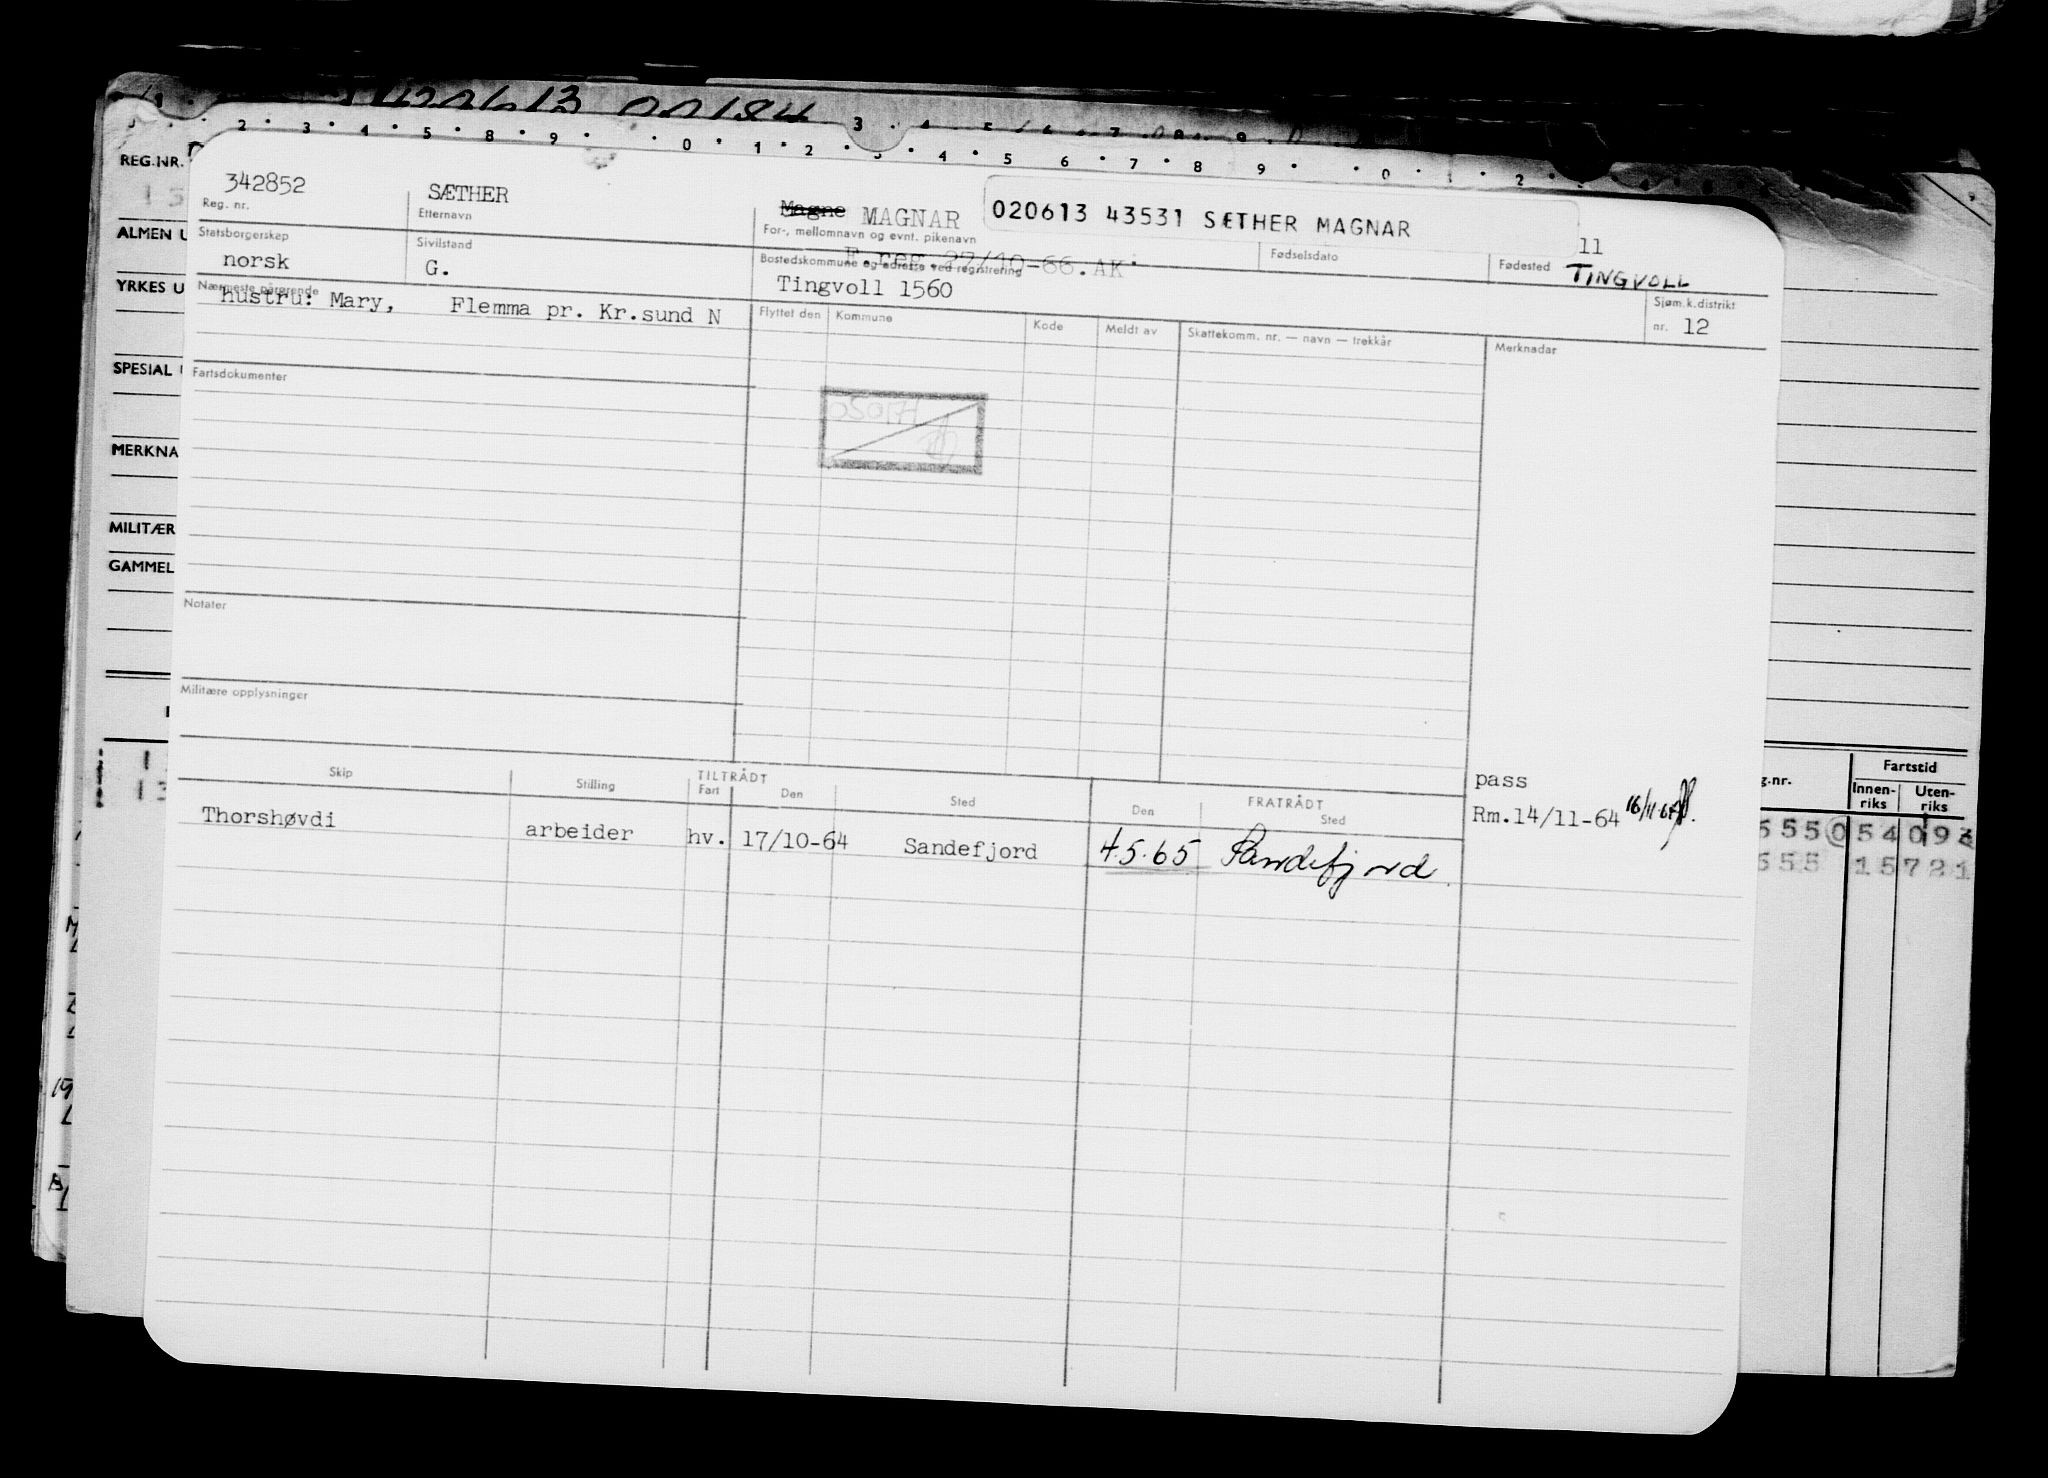 420613 00184
2 3 4 5 8 9 0 1 2 3 4 5 6 7 8 9 0 1 2
REG.NR.
342852
Reg. nr.
SÆTHER
Etternavn
Magne MAGNAR
For-, mellomnavn og evnt. pikenavn
020613 43531 SÆTHER MAGNAR
Fødselsdato
11
Fødested TINGVOLL
ALMEN U
Statsborgerskap
norsk
Sivilstand
G.
F.reg. 27/10-66. AK
Bostedskommune og adresse ved registrering
Tingvoll 1560
Sjøm.k.distrikt
nr. 12
YRKES U
Nærmeste pårørende
hustru: Mary, Flemma pr. Kr.sund N
Flyttet den Kommune Kode Meldt av Skattekomm. nr. — navn — trekkår Merknadar
SPESIAL
Fartsdokumenter
MERKNA
MILITÆR
GAMMEL
Notater
Militære opplysninger
Skip Stilling TILTRÅDT Fart Den Sted FRATRÅDT Den Sted
pass
Rm.14/11-64
Thorshøvdi arbeider hv. 17/10-64 Sandefjord 4.5.65 Sandefjord
g.nr. Fartstid
Innen-riks Uten-riks
555 0 54 09
555 15721